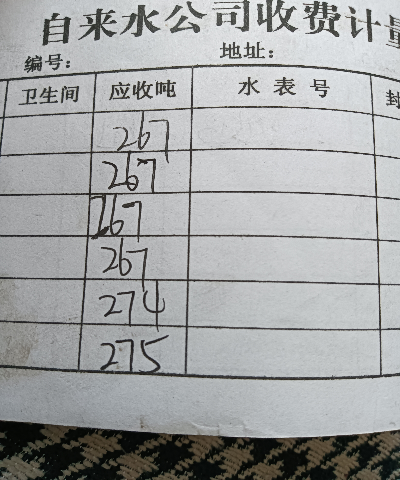 自来水公司收费计量
编号： 地址：
卫生间 应收吨 水表号 封
267
267
267
267
274
275